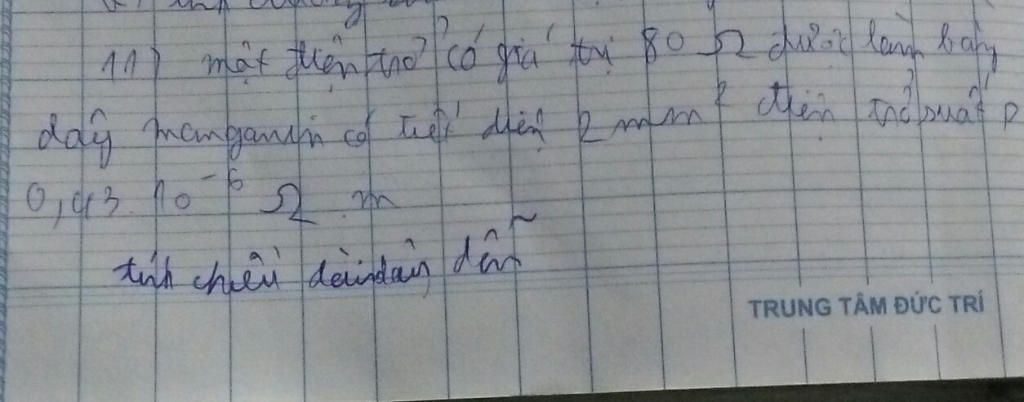 11) một điện trở có giá trị 80 Ω được làm bằng
dây manganin có tiết diện 2 mm² điện trở suất ρ
0,43. 10⁻⁶ Ω m
tính chiều dài dây dẫn
TRUNG TÂM ĐỨC TRÍ